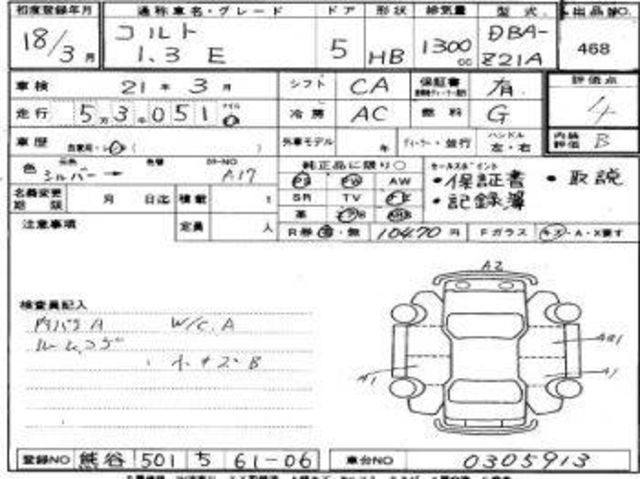 初度登録年月 通称車名・グレード ドア 形状 排気量 型式 出品NO.
18/3月 コルト 1.3 E 5 HB 1300cc DBA-Z21A 468
車検 21年 3月 シフト CA 保証書 有 評価点 4
走行 5万3千051 冷房 AC 燃料 G 内装評価 B
車歴 外車モデル 年 ディーラー・並行 ハンドル 左・右
色 シルバー 色番 カラーNO A17 純正品に限り○ セールスポイント
PS PW AW ・保証書 ・取説
名義変更期限 月 日迄 積載 t SR TV ・記録簿
注意事項 定員 人 革
R券 ・無 10470円 Fガラス キズ・A・X要す
A2
検査員記入
内バリA W/C.A
ルームコゲ
・小キズ・B
AB1
A1 A1
登録NO 熊谷 501 ち 61-06 車台NO 0305913